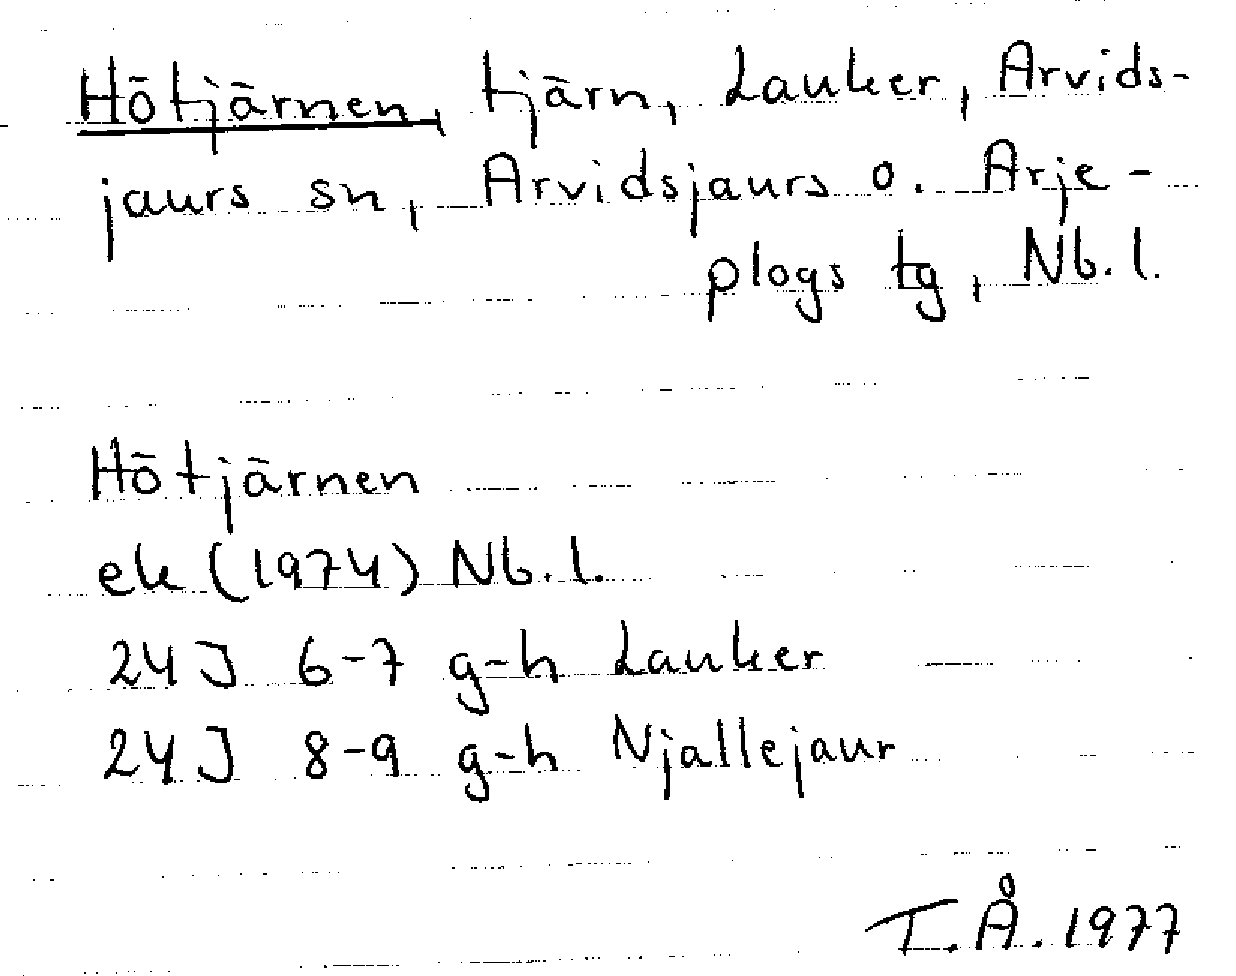 Hötjärnen, tjärn, Lauker, Arvids-
jaurs sn, Arvidsjaurs o. Arje-
plogs tg, Nb. l.
Hötjärnen
ek (1974) Nb. l.
24 J 6-7 g-h Lauker
24 J 8-9 g-h Njallejaur
T. Å. 1977